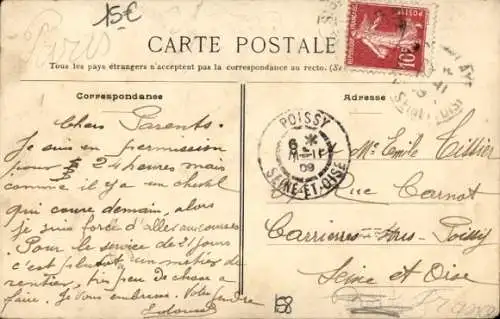 15€
Paris
CARTE POSTALE
Tous les pays étrangers n'acceptent pas la correspondance au recto. (Se
Correspondance
Adresse
REPUBLIQUE FRANÇAISE
POSTES
10c
POISSY
6 *
11-11
09
SEINE-ET-OISE
Chers Parents.
Je suis en permission
pour 24 heures mais
comme il y a un cheval
qui courre demain, alors
je suis forcé d'aller au courses
Pour le service de 21 jours
c'est plutôt un métier de
rentier, très peu de chose a
faire. Je vous embrasse. Votre gendre
Mr Emile Tillier
Rue Carnot
Carrières sous Poissy
Seine et Oise